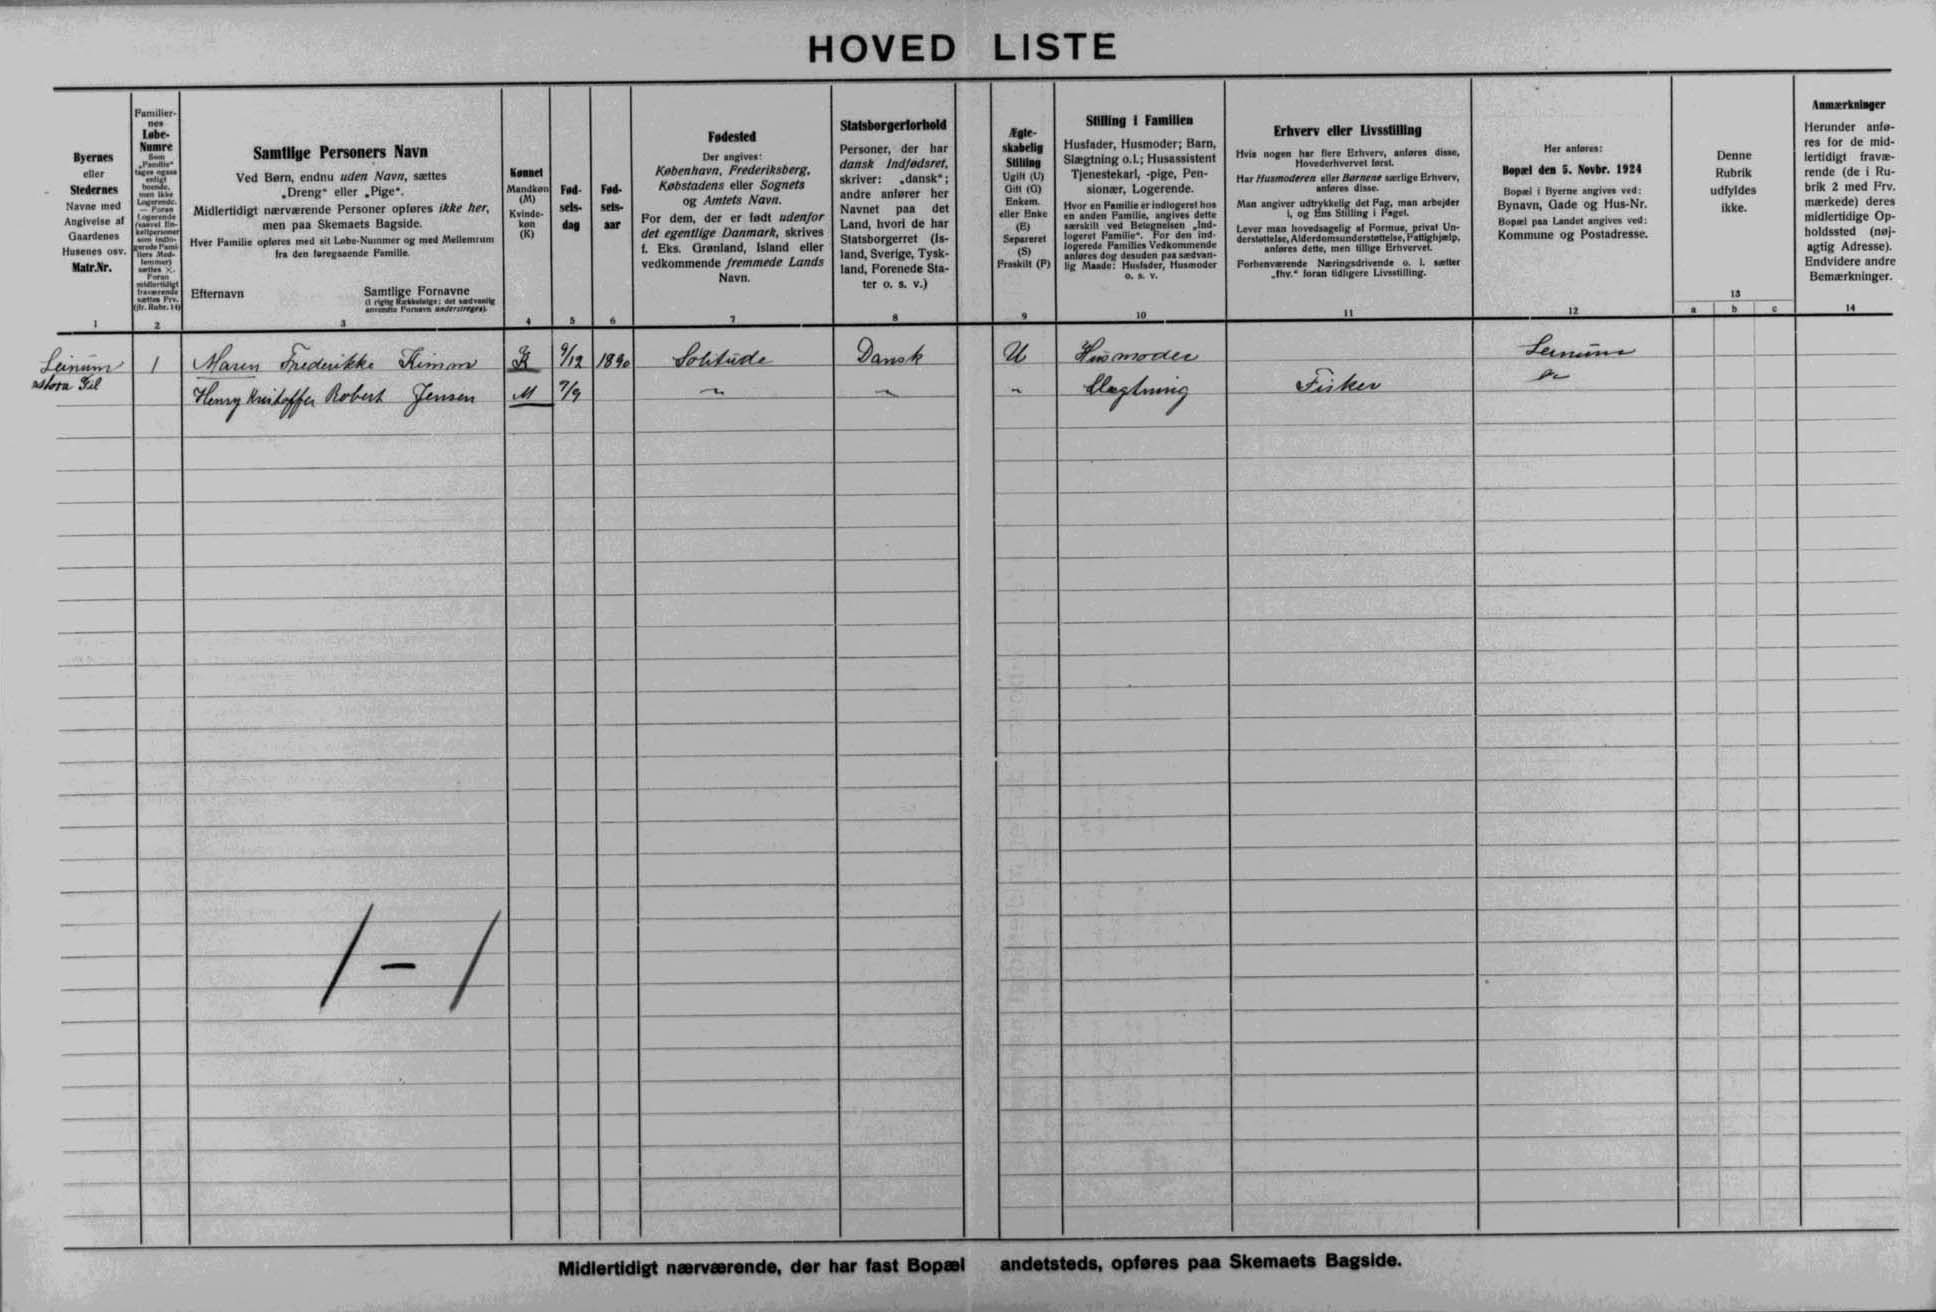 HOVED LISTE
Byernes
eller
Stedernes
Navne med
Angivelse af
Gaardenes
Husenes osv.
Matr.Nr.
1
Familier-
nes
Løbe-
Numre
Som
„Familie“
tages ogsaa
enligt
boende,
men ikke
Logerende.
— Foran
Logerende
(saavel En-
keltpersoner
som indlo-
gerede Fami-
liers Med-
lemmer)
sættes ×.
Foran
midlertidigt
fraværende
sættes Frv.
(jfr. Rubr. 14)
2
Samtlige Personers Navn
Ved Børn, endnu uden Navn, sættes
„Dreng“ eller „Pige“.
Midlertidigt nærværende Personer opføres ikke her,
men paa Skemaets Bagside.
Hver Familie opføres med sit Løbe-Nummer og med Mellemrum
fra den foregaaende Familie.
Efternavn
Samtlige Fornavne
(i rigtig Rækkefølge; det sædvanlig
anvendte Fornavn understreges).
3
Kønnet
Mandkøn
(M)
Kvinde-
køn
(K)
4
Fød-
sels-
dag
5
Fød-
sels-
aar
6
Fødested
Der angives:
København, Frederiksberg,
Købstadens eller Sognets
og Amtets Navn.
For dem, der er født udenfor
det egentlige Danmark, skrives
f. Eks. Grønland, Island eller
vedkommende fremmede Lands
Navn.
7
Statsborgerforhold
Personer, der har
dansk Indfødsret,
skriver: „dansk“;
andre anfører her
Navnet paa det
Land, hvori de har
Statsborgerret (Is-
land, Sverige, Tysk-
land, Forenede Sta-
ter o. s. v.)
8
Ægte-
skabelig
Stilling
Ugift (U)
Gift (G)
Enkem.
eller Enke
(E)
Separeret
(S)
Fraskilt (F)
9
Stilling i Familien
Husfader, Husmoder; Barn,
Slægtning o.l.; Husassistent
Tjenestekarl, -pige, Pen-
sionær, Logerende.
Hvor en Familie er indlogeret hos
en anden Familie, angives dette
særskilt ved Betegnelsen „Ind-
logeret Familie“. For den ind-
logerede Families Vedkommende
anføres dog desuden paa sædvan-
lig Maade: Husfader, Husmoder
o. s. v.
10
Erhverv eller Livsstilling
Hvis nogen har flere Erhverv, anføres disse,
Hovederhvervet først.
Har Husmoderen eller Børnene særlige Erhverv,
anføres disse.
Man angiver udtrykkelig det Fag, man arbejder
i, og Ens Stilling i Faget.
Lever man hovedsagelig af Formue, privat Un-
derstøttelse, Alderdomsunderstøttelse, Fattighjælp,
anføres dette, men tillige Erhvervet.
Forhenværende Næringsdrivende o. l. sætter
„fhv.“ foran tidligere Livsstilling.
11
Her anføres:
Bopæl den 5. Novbr. 1924
Bopæl i Byerne angives ved:
Bynavn, Gade og Hus-Nr.
Bopæl paa Landet angives ved:
Kommune og Postadresse.
12
Denne
Rubrik
udfyldes
ikke.
13
a b c
Anmærkninger
Herunder anfø-
res for de mid-
lertidigt fravæ-
rende (de i Ru-
brik 2 med Frv.
mærkede) deres
midlertidige Op-
holdssted (nøj-
agtig Adresse).
Endvidere andre
Bemærkninger.
14
Leinum 1 Maren Frederikke Kimm K 9/12 1890 Solitude Dansk U Husmoder Leinum
Stora Gil Henry Kristoffer Robert Jensen M 7/9 〃 〃 〃 Slægtning Fisker
1 - 1
Midlertidigt nærværende, der har fast Bopæl andetsteds, opføres paa Skemaets Bagside.